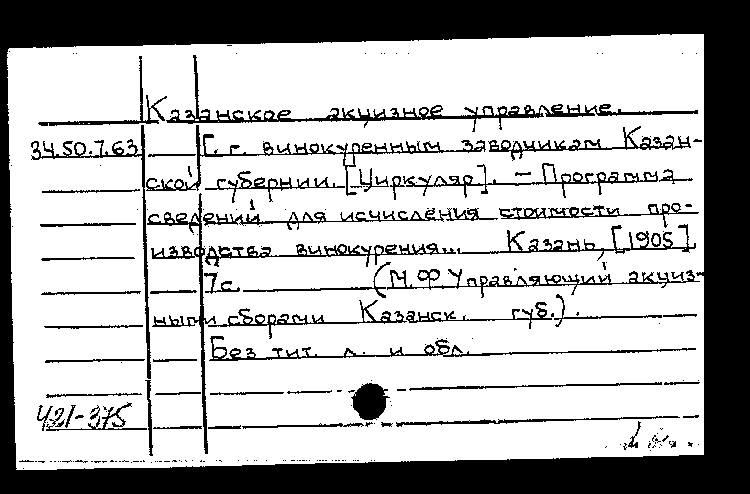 Казанское акцизное управление.
34.50.7.63 Г. г. винокуренным заводчикам Казан-
ской губернии. [Циркуляр]. - Программа
сведений для исчисления стоимости про-
изводства винокурения... Казань, [1905].
7с. (М.Ф Управляющий акциз-
ными сборами Казанск. губ.).
Без тит. л. и обл.
421-375